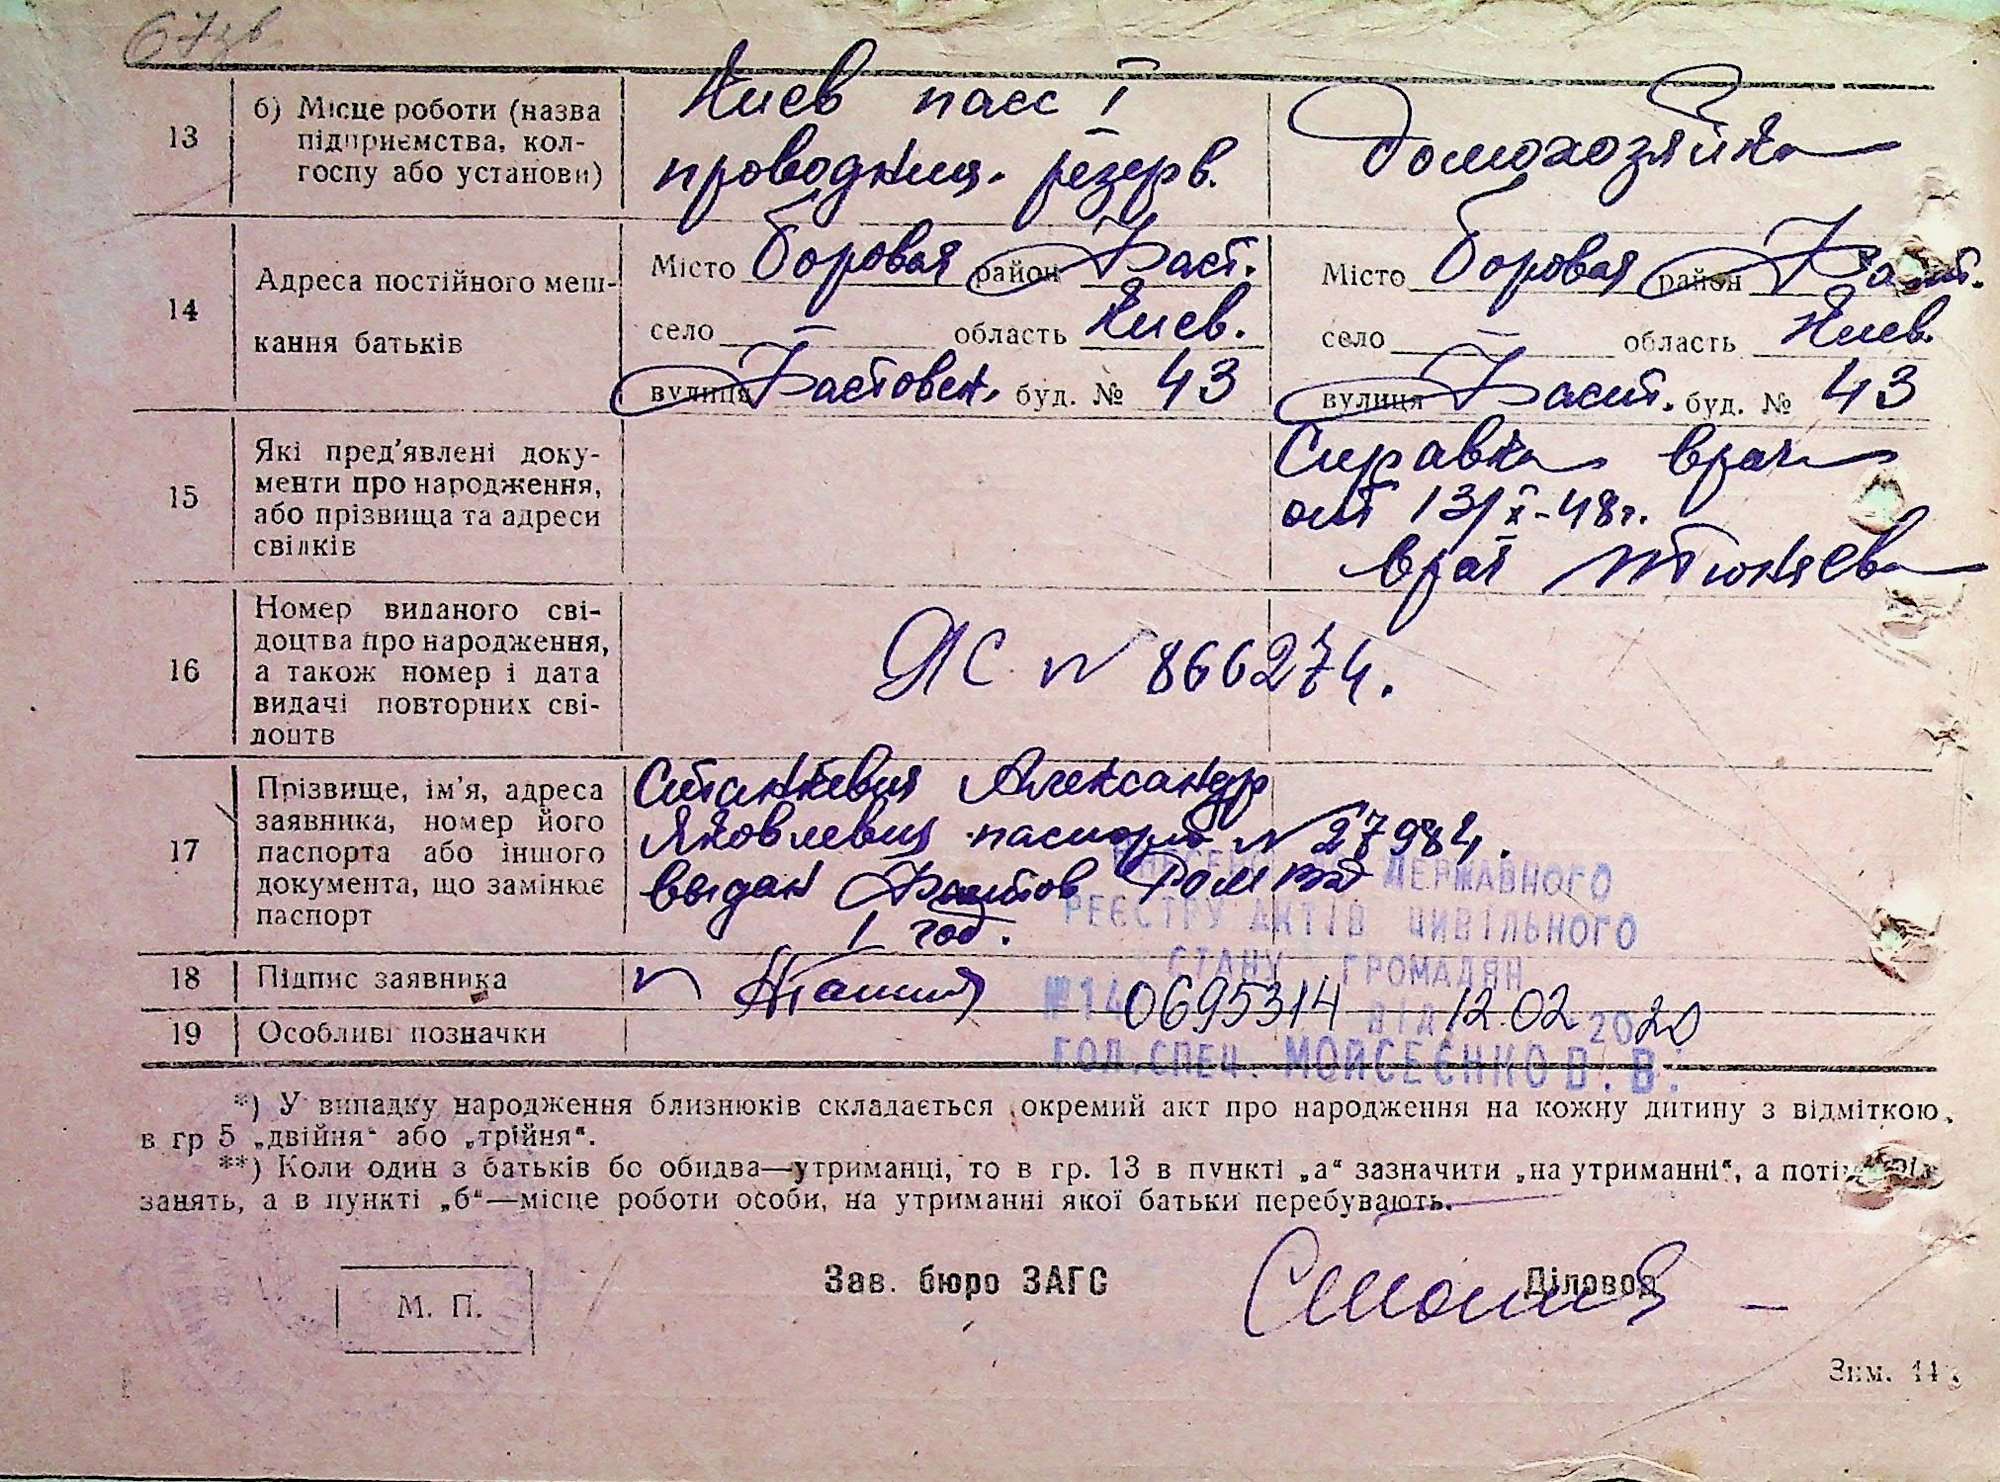 67зв
13 б) Місце роботи (назва підприємства, колгоспу або установи)
Киев пасс I
проводниц. резерв.
Домохозяйка
14 Адреса постійного мешкання батьків
Місто Боровая район Фаст.
село — область Киев.
вулиця Фастовск. буд. № 43
Місто Боровая район Фаст.
село — область Киев.
вулиця Фаст. буд. № 43
15 Які пред'явлені документи про народження, або прізвища та адреси свідків
Справка врача
от 13/X-48г.
врач Тюняева
16 Номер виданого свідоцтва про народження, а також номер і дата видачі повторних свідоцтв
ЯС N 866274.
17 Прізвище, ім'я, адреса заявника, номер його паспорта або іншого документа, що замінює паспорт
Станкевич Александр
Яковлевич паспорт N 27984.
выдан Фастов
1 год.
18 Підпис заявника
19 Особливі позначки
ВНЕСЕНО ДО ДЕРЖАВНОГО
РЕЄСТРУ АКТІВ ЦИВІЛЬНОГО
СТАНУ ГРОМАДЯН
№14 0695314 ВІД 12.02 2020
ГОЛ.СПЕЦ. МОЙСЕЄНКО В. В.
*) У випадку народження близнюків складається окремий акт про народження на кожну дитину з відміткою,
в гр 5 „двійня“ або „трійня“.
**) Коли один з батьків бо обидва—утриманці, то в гр. 13 в пункті „а“ зазначити „на утриманні“, а потім
занять, а в пункті „б“—місце роботи особи, на утриманні якої батьки перебувають.
М. П.
Зав. бюро ЗАГС
Діловод
Зим. 44